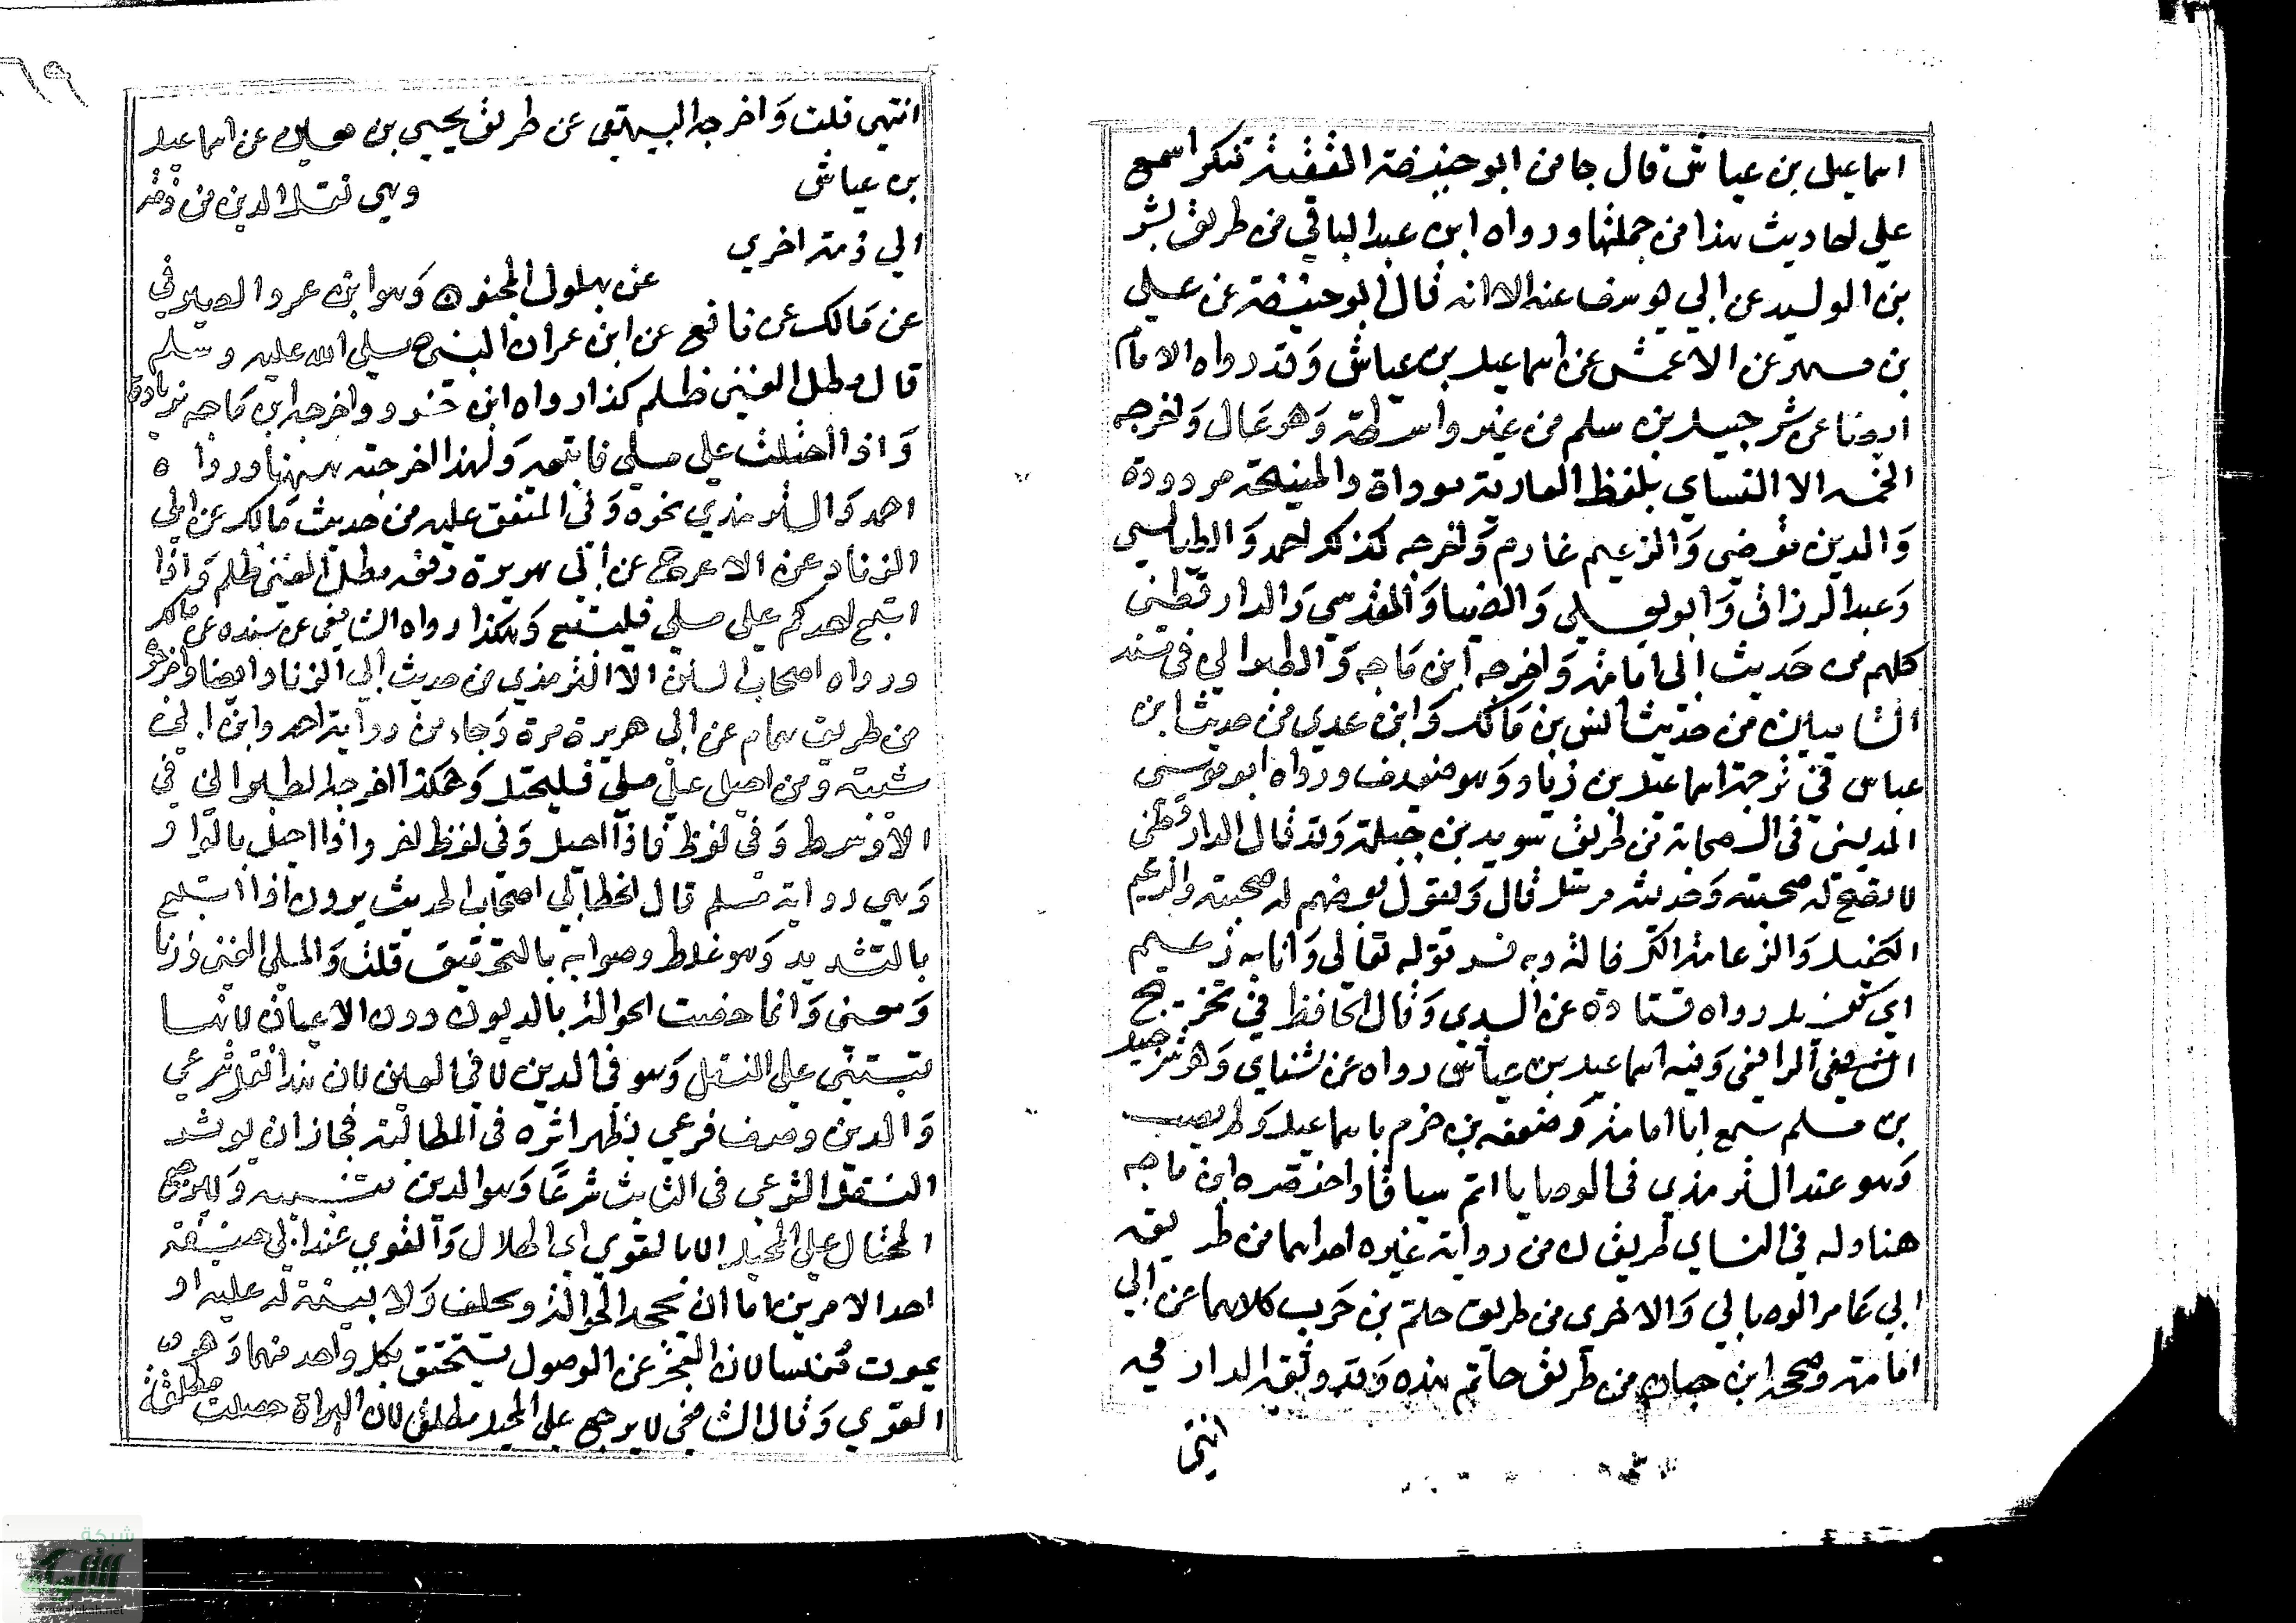 اسماعيل بن عياش قال جا من ابو حنيفة الفقيه تنكر اسمع
علي احاديث هذا من جملتها ورواه ابن عبد الباقي من طريق بشر
بن الوليد عن ابي يوسف عنه الا انه قال ابو حنيفة عن علي
بن مسهر عن الاعمش عن اسماعيل بن عياش وقد رواه الامام
ايضا عن شرحبيل بن مسلم من غير واسطة وهو عال واخرجه
الخمسة الا النساي بلفظ العارية موداة والمنيحة مردودة
والدين مقضي والزعيم غارم واخرجه كذلك احمد والطيالسي
وعبد الرزاق وابو يعلي والضيا والمقدسي والدارقطني
كلهم من حديث ابي امامة واخرجه ابن ماجه والطبراني في مسند
الشاميين من حديث انس بن مالك وابن عدي من حديث ابن
عباس في ترجمة اسماعيل بن زياد وهو ضعيف ورواه ابو موسى
المديني في الصحابة من طريق سويد بن جبلة وقد قال الدارقطني
لا تصح له صحبته وحديثه مرسل قال ويقول بعضهم له صحبته والزعيم
الكفيل والزعامة الكفالة وبه فسر قوله تعالي وانا به زعيم
اي كفيل رواه قتادة عن السدي وقال الحافظ في تخريج
الرافعي وفيه اسماعيل بن عياش رواه عن شناي وهو شرحبيل
بن مسلم سمع ابا امامة وضعفه بن حزم باسماعيل ولم يصب
وهو عند الترمذي في الوصايا اتم سياقا واختصره ابن ماجه
هنا وله في النساي طريق له من رواية غيره احداهما من طريق
ابي عامر الوصابي والاخرى من طريق حاتم بن حرب كلاهما عن ابي
امامة وصححه ابن حبان من طريق حاتم هذه وقد وثقه الدارمي
انتهى
٦٩
انتهى قلت واخرجه البيهقي عن طريق يحيى بن معين عن اسماعيل
بن عياش وهي نقل الدين من ذمة
الي ذمة اخري
عن بهلول المجنون وهو ابن عمرو الصيرفي
عن مالك عن نافع عن ابن عمر ان النبي صلى الله عليه وسلم
قال مطل الغني ظلم كذا رواه ابن خسرو واخرجه ابن ماجه بزيادة
واذا احلت علي ملي فاتبعه ولهذا اخرجته ههنا وروا ه
احمد والترمذي نحوه وفي المتفق عليه من حديث مالك عن ابي
الزناد عن الاعرج عن ابي هريرة رفعه مطل الغني ظلم واذا
اتبع احدكم علي ملي فليتبع وهكذا رواه الشافعي عن سنده عن مالك
ورواه اصحاب السنن الا الترمذي من حديث ابي الزناد ايضا واخرجوه
من طريق همام عن ابي هريرة مرة وجا من رواية احمد وابن ابي
شيبة ومن احيل علي ملي فليحتل وهكذا اخرجه الطبراني في
الاوسط وفي لفظ فاذا احيل وفي لفظ اخر واذا احيل بالواو
وهي رواية مسلم قال الخطابي اصحاب الحديث يروون اذا اتبع
بالتشديد وهو غلط وصوابه بالتخفيف قلت والملي الغني وزنا
ومعنى وانما خصت الحوالة بالديون دون الاعيان لانها
تبتنى علي النقل وهو في الدين لا في العين لان هذا نقل شرعي
والدين وصف شرعي يظهر اثره في المطالبة فجاز ان يوثر
النقل الشرعي في الثابت شرعا وهو الدين
المحتال علي المحيل الا بالتوي اي الهلاك والتوي عند ابي حنيفة
احد الامرين اما ان يجحد الحوالة ويحلف ولا بينة له عليه او
يموت مفلسا لان العجز عن الوصول يتحقق بكل واحد منهما وهو
التوي وقال الشافعي لا يرجع علي المحيل مطلقا لان البراة حصلت مطلقة
شبكة
الألوكة